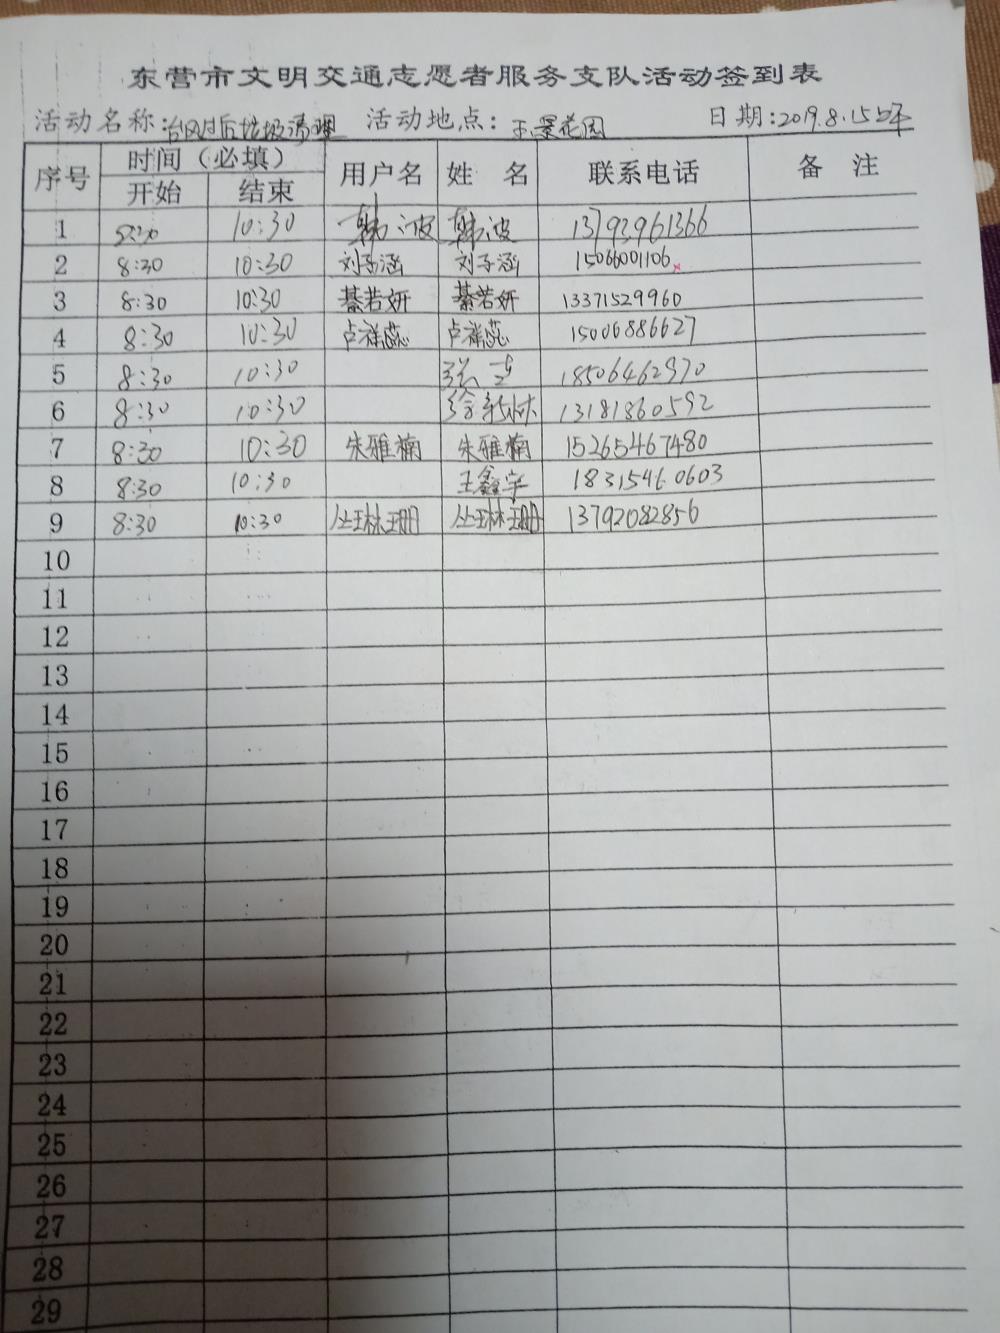 东营市文明交通志愿者服务支队活动签到表
活动名称:台风过后垃圾清理 活动地点: 玉景花园 日期:2019.8.15上午
序号 时间（必填） 用户名 姓 名 联系电话 备 注
开始 结束
1 8:30 10:30 韩波 韩波 13793961366
2 8:30 10:30 刘子涵 刘子涵 15066001106
3 8:30 10:30 綦若妍 綦若妍 13371529960
4 8:30 10:30 卢祥蕊 卢祥蕊 15006886627
5 8:30 10:30 18506462970
6 8:30 10:30 徐新林 13181860592
7 8:30 10:30 朱雅楠 朱雅楠 15265467480
8 8:30 10:30 王鑫宇 18315460603
9 8:30 10:30 丛琳珊 丛琳珊 13792082856
10
11
12
13
14
15
16
17
18
19
20
21
22
23
24
25
26
27
28
29